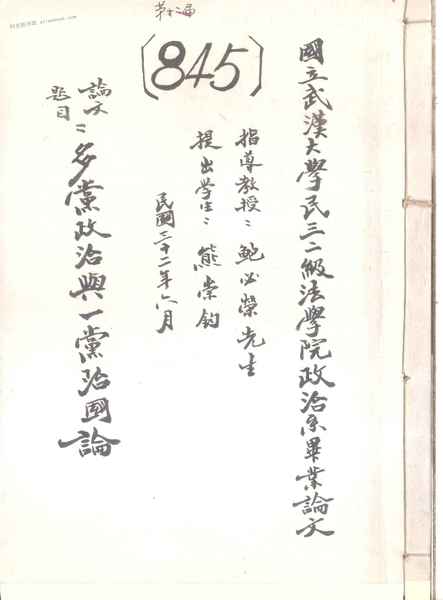 第十二届
國立武漢大學民三二級法學院政治系畢業論文
指導教授：鮑必榮先生
提出學生：熊崇鈞
民國三十二年六月
(845)
論文題目：多黨政治與一黨治國論